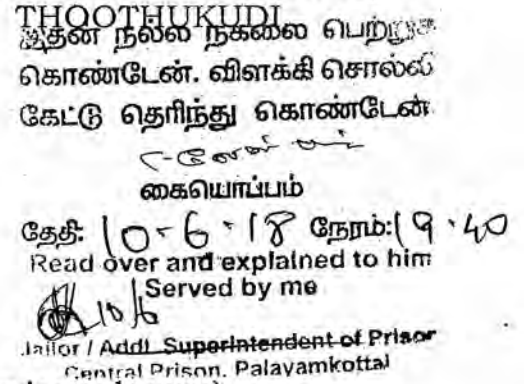 THOOTHUKUDI
இதன் நல்ல நகலை பெற்றுக்
கொண்டேன். விளக்கி சொல்ல
கேட்டு தெரிந்து கொண்டேன்
கையொப்பம்
தேதி: 10-6-18 நேரம்: 19.40
Read over and explained to him
Served by me
10/6
Jailor / Addl. Superintendent of Prison
Central Prison, Palayamkottai